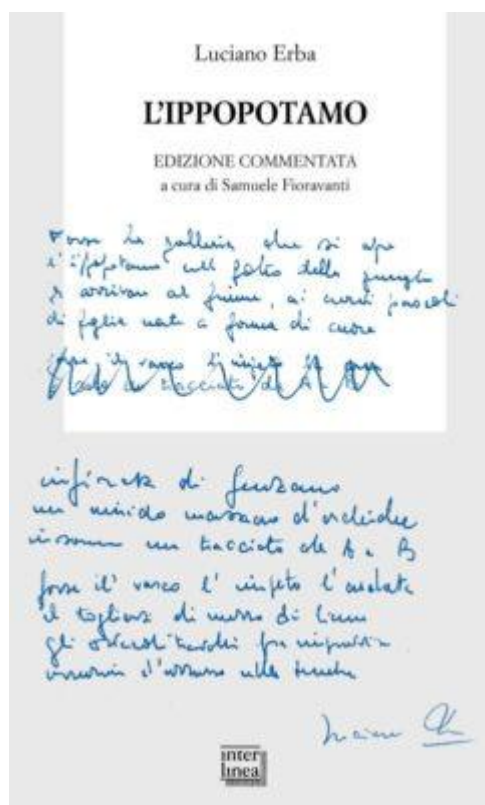 Luciano Erba
L'IPPOPOTAMO
EDIZIONE COMMENTATA
a cura di Samuele Fioravanti
Forse la galleria che si apre
l'ippopotamo nel folto della giungla
per arrivare al fiume, ai pascoli
di foglie nate a forma di cuore
tracciato da A a B
infiorata di Genzano
un umido d'orchidee
insomma un tracciato da A a B
forse il varco l'impeto l'andata
il togliersi di mezzo di
gli ostacoli
Luciano
inter
linea